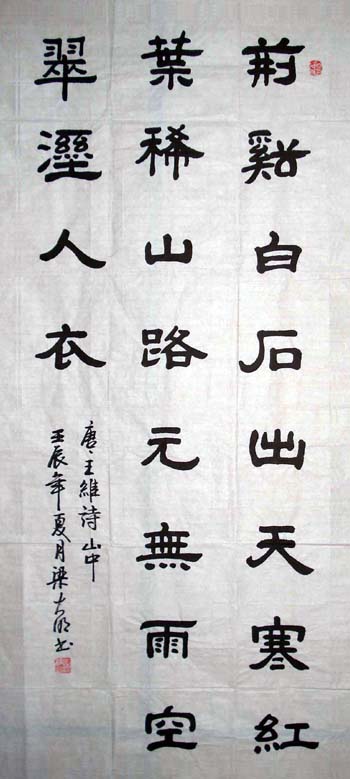 荊谿白石出天寒紅
葉稀山路元無雨空
翠溼人衣
唐王維詩山中
壬辰年夏月梁大明书